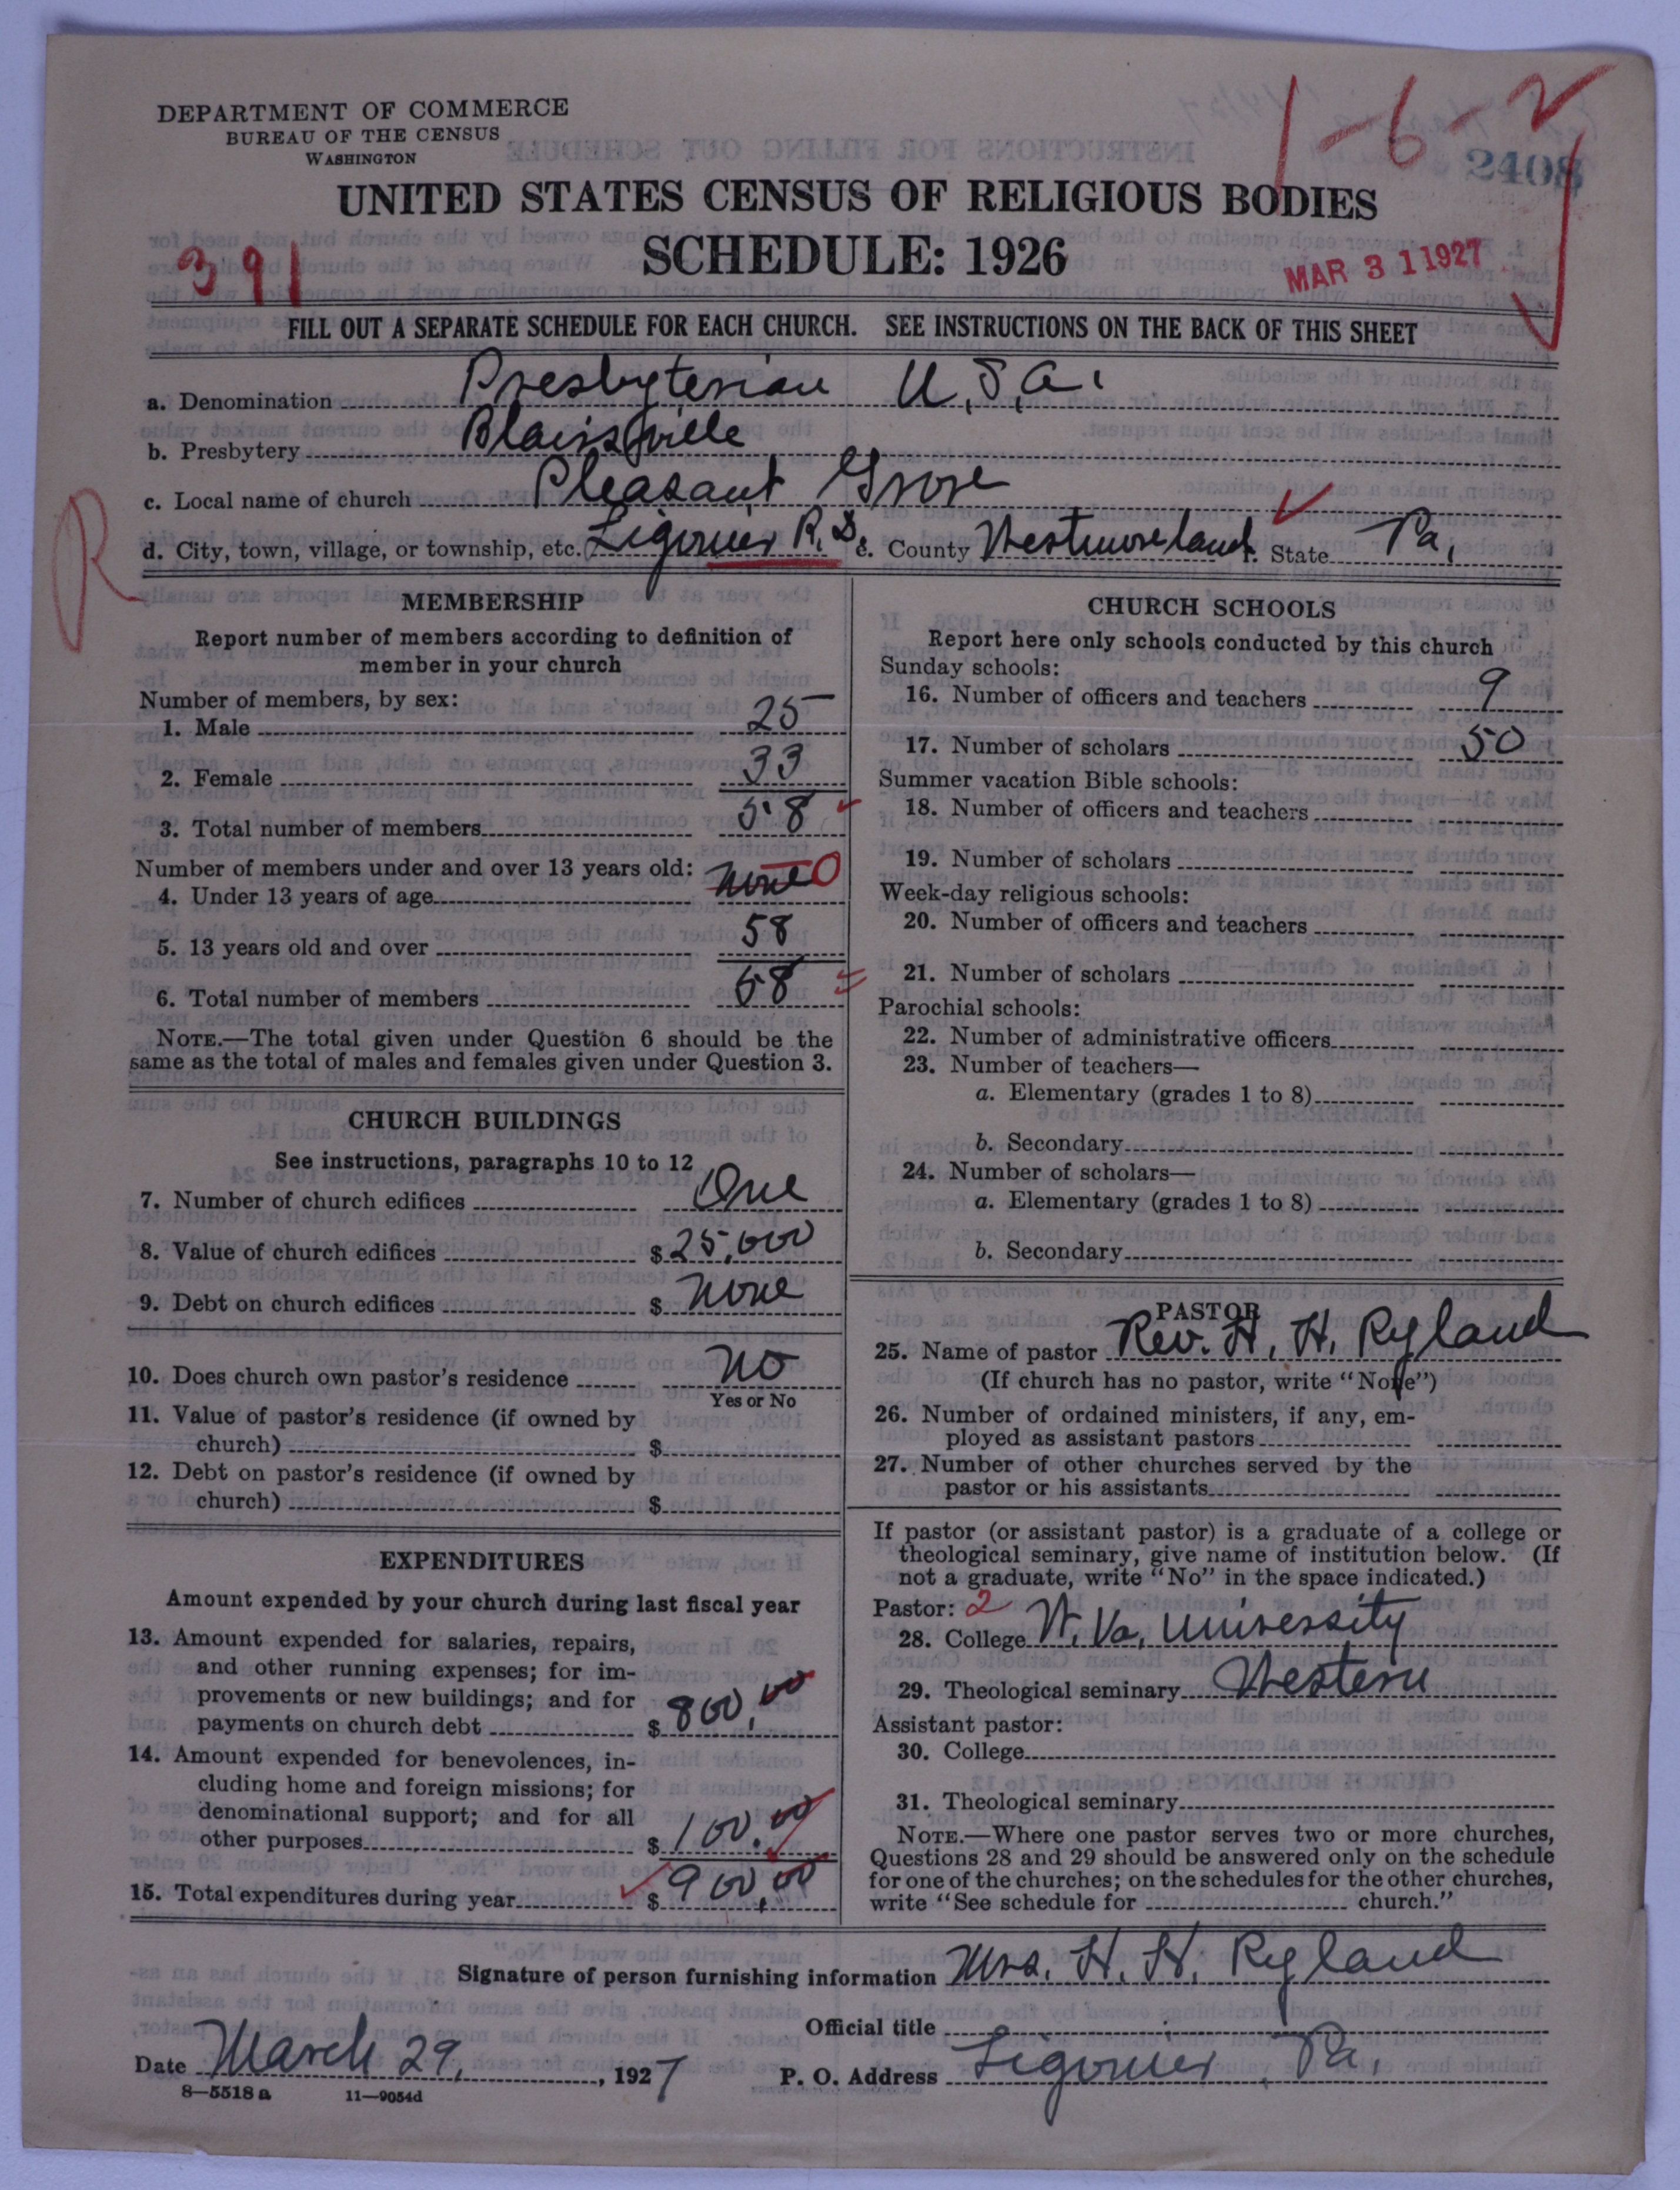 DEPARTMENT OF COMMERCE
BUREAU OF THE CENSUS
WASHINGTON
1-6-2
2408
UNITED STATES CENSUS OF RELIGIOUS BODIES
SCHEDULE: 1926
391
MAR 31 1927
FILL OUT A SEPARATE SCHEDULE FOR EACH CHURCH. SEE INSTRUCTIONS ON THE BACK OF THIS SHEET
a. Denomination Presbyterian U.S.A.
b. Presbytery Blairsville
c. Local name of church Pleasant Grove
R
d. City, town, village, or township, etc. Ligonier R.D. e. County Westmoreland f. State Pa.
MEMBERSHIP
Report number of members according to definition of
member in your church
Number of members, by sex:
1. Male 25
2. Female 33
3. Total number of members 58
Number of members under and over 13 years old:
4. Under 13 years of age none 0
5. 13 years old and over 58
6. Total number of members 58
NOTE.—The total given under Question 6 should be the
same as the total of males and females given under Question 3.
CHURCH BUILDINGS
See instructions, paragraphs 10 to 12
7. Number of church edifices One
8. Value of church edifices $25,000
9. Debt on church edifices $ none
10. Does church own pastor's residence no
Yes or No
11. Value of pastor's residence (if owned by
church) $
12. Debt on pastor's residence (if owned by
church) $
EXPENDITURES
Amount expended by your church during last fiscal year
13. Amount expended for salaries, repairs,
and other running expenses; for im-
provements or new buildings; and for
payments on church debt $ 800.00
14. Amount expended for benevolences, in-
cluding home and foreign missions; for
denominational support; and for all
other purposes $ 100.00
15. Total expenditures during year $ 900.00
CHURCH SCHOOLS
Report here only schools conducted by this church
Sunday schools:
16. Number of officers and teachers 9
17. Number of scholars 50
Summer vacation Bible schools:
18. Number of officers and teachers
19. Number of scholars
Week-day religious schools:
20. Number of officers and teachers
21. Number of scholars
Parochial schools:
22. Number of administrative officers
23. Number of teachers—
a. Elementary (grades 1 to 8)
b. Secondary
24. Number of scholars—
a. Elementary (grades 1 to 8)
b. Secondary
PASTOR
25. Name of pastor Rev. H. H. Ryland
(If church has no pastor, write "None")
26. Number of ordained ministers, if any, em-
ployed as assistant pastors
27. Number of other churches served by the
pastor or his assistants
If pastor (or assistant pastor) is a graduate of a college or
theological seminary, give name of institution below. (If
not a graduate, write "No" in the space indicated.)
Pastor: 2
28. College W. Va. University
29. Theological seminary Western
Assistant pastor:
30. College
31. Theological seminary
NOTE.—Where one pastor serves two or more churches,
Questions 28 and 29 should be answered only on the schedule
for one of the churches; on the schedules for the other churches,
write "See schedule for church."
Signature of person furnishing information Mrs. H. H. Ryland
Official title
Date March 29, 1927 P. O. Address Ligonier, Pa.
8—5518 a 11—9054d